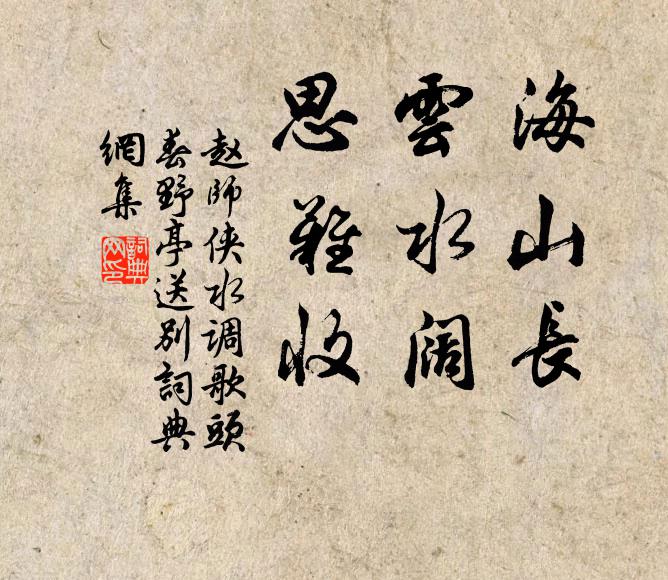 海山長
雲水阔
思難收
赵師侠水调歌頭
春野亭送别詞典
網集
詞典網印